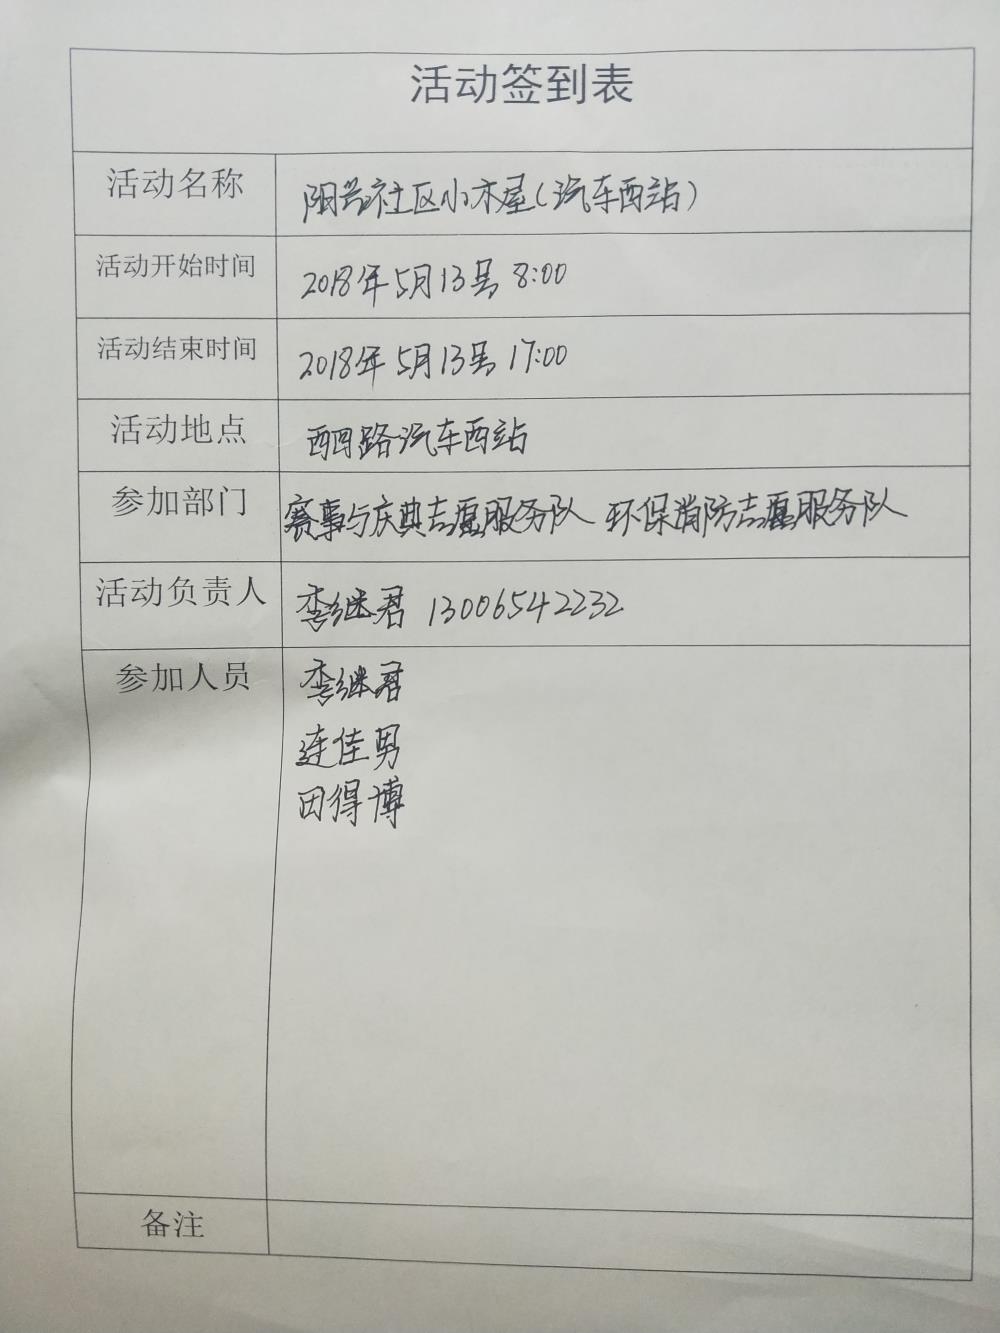 活动签到表
活动名称 阳光社区小木屋(汽车西站)
活动开始时间 2018年5月13号 8:00
活动结束时间 2018年5月13号 17:00
活动地点 路汽车西站
参加部门 赛事与庆典志愿服务队 环保消防志愿服务队
活动负责人 李继君 13006542232
参加人员 李继君
连佳男
田得博
备注